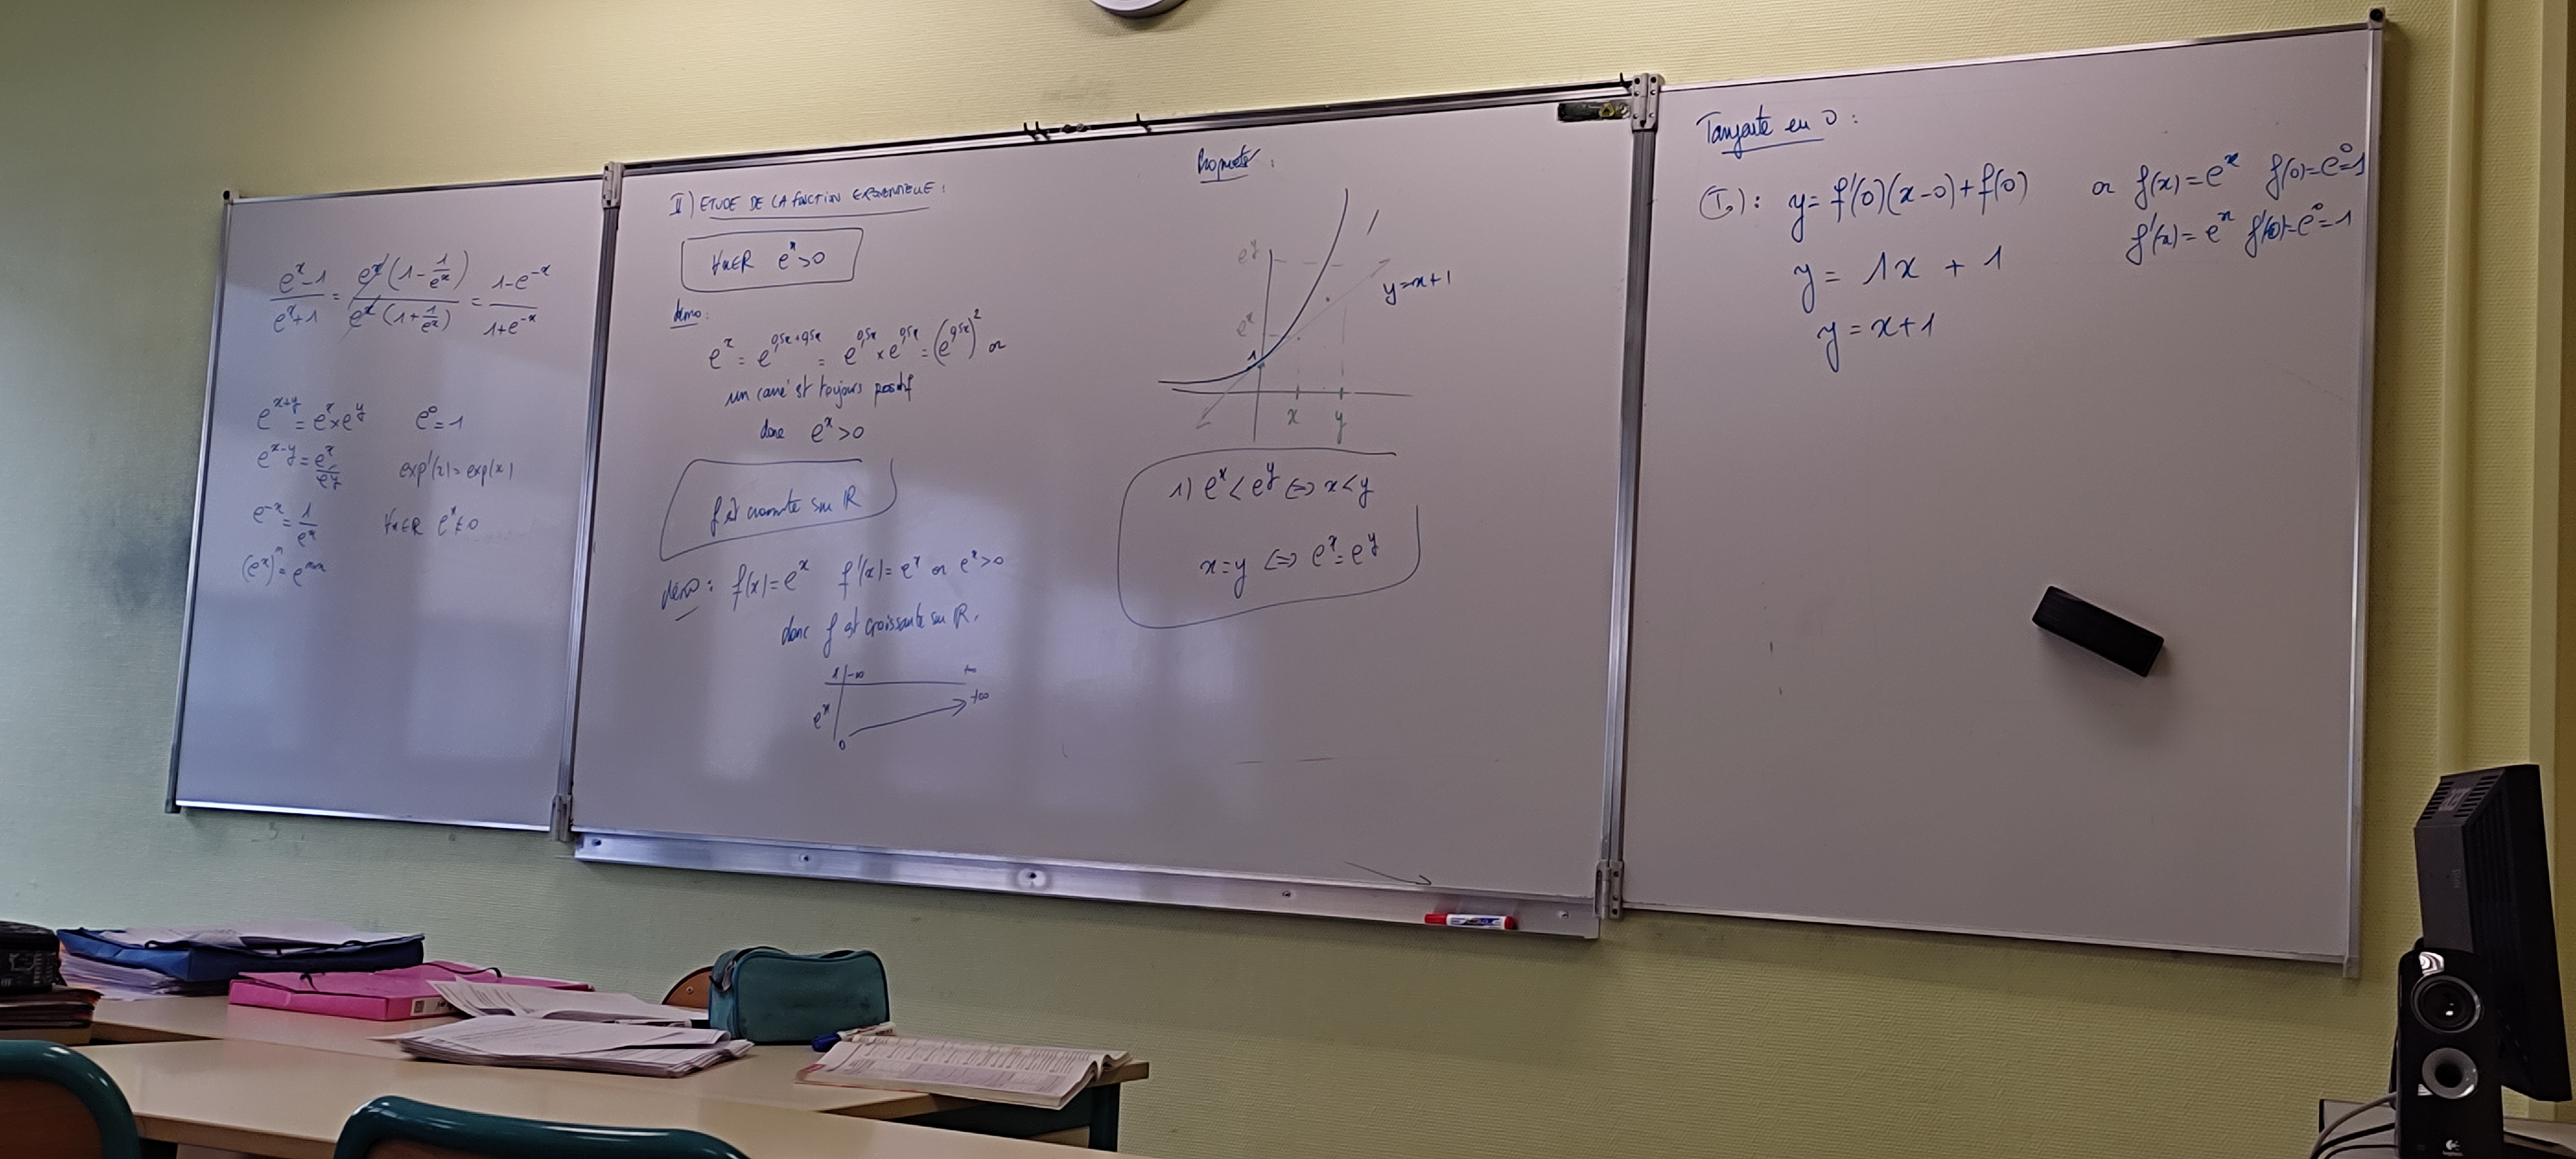 e^x-1/e^x+1 = e^x(1-1/e^x)/e^x(1+1/e^x) = 1-e^-x/1+e^-x
e^x+y = e^x×e^y e^0=1
e^x-y = e^x/e^y exp'(x)=exp(x)
e^-x = 1/e^x ∀x∈R e^x≠0
(e^x)^n = e^nx
II) ETUDE DE LA FONCTION EXPONENTIELLE :
∀x∈R e^x>0
démo:
e^x = e^0,5x+0,5x = e^0,5x × e^0,5x = (e^0,5x)^2 or
un carré est toujours positif
donc e^x>0
f est croissante sur R
démo : f(x)=e^x f'(x)=e^x or e^x>0
donc f est croissante sur R.
x -∞ +∞
e^x 0 +∞
Propriété :
e^y
y=x+1
e^x
1
x y
1) e^x<e^y ⟺ x<y
x=y ⟺ e^x=e^y
Tangente en 0 :
(T₀) : y=f'(0)(x-0)+f(0) or f(x)=e^x f(0)=e^0=1
f'(x)=e^x f'(0)=e^0=1
y = 1x + 1
y = x+1